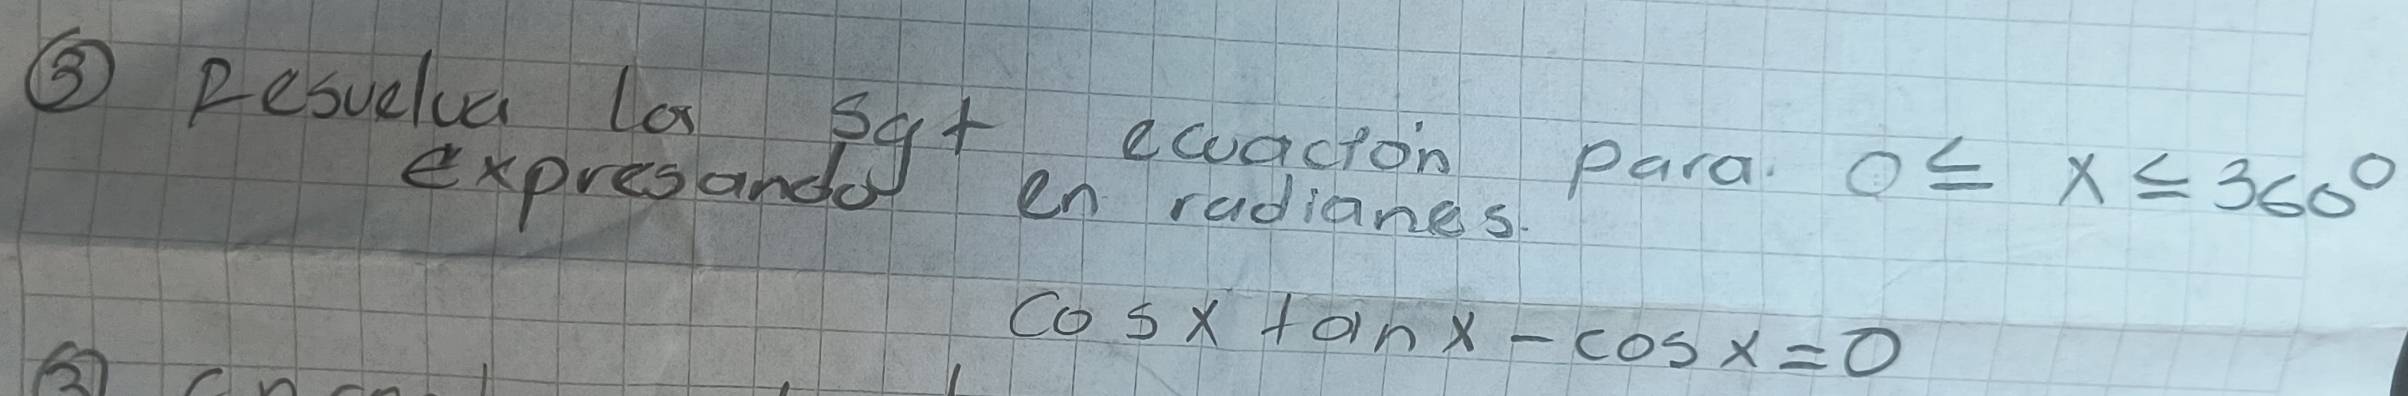 ③ Resuelva la sgt ecuación para. 0 ≤ x ≤ 360°
expresando en radianes.
cos x tan x - cos x = 0